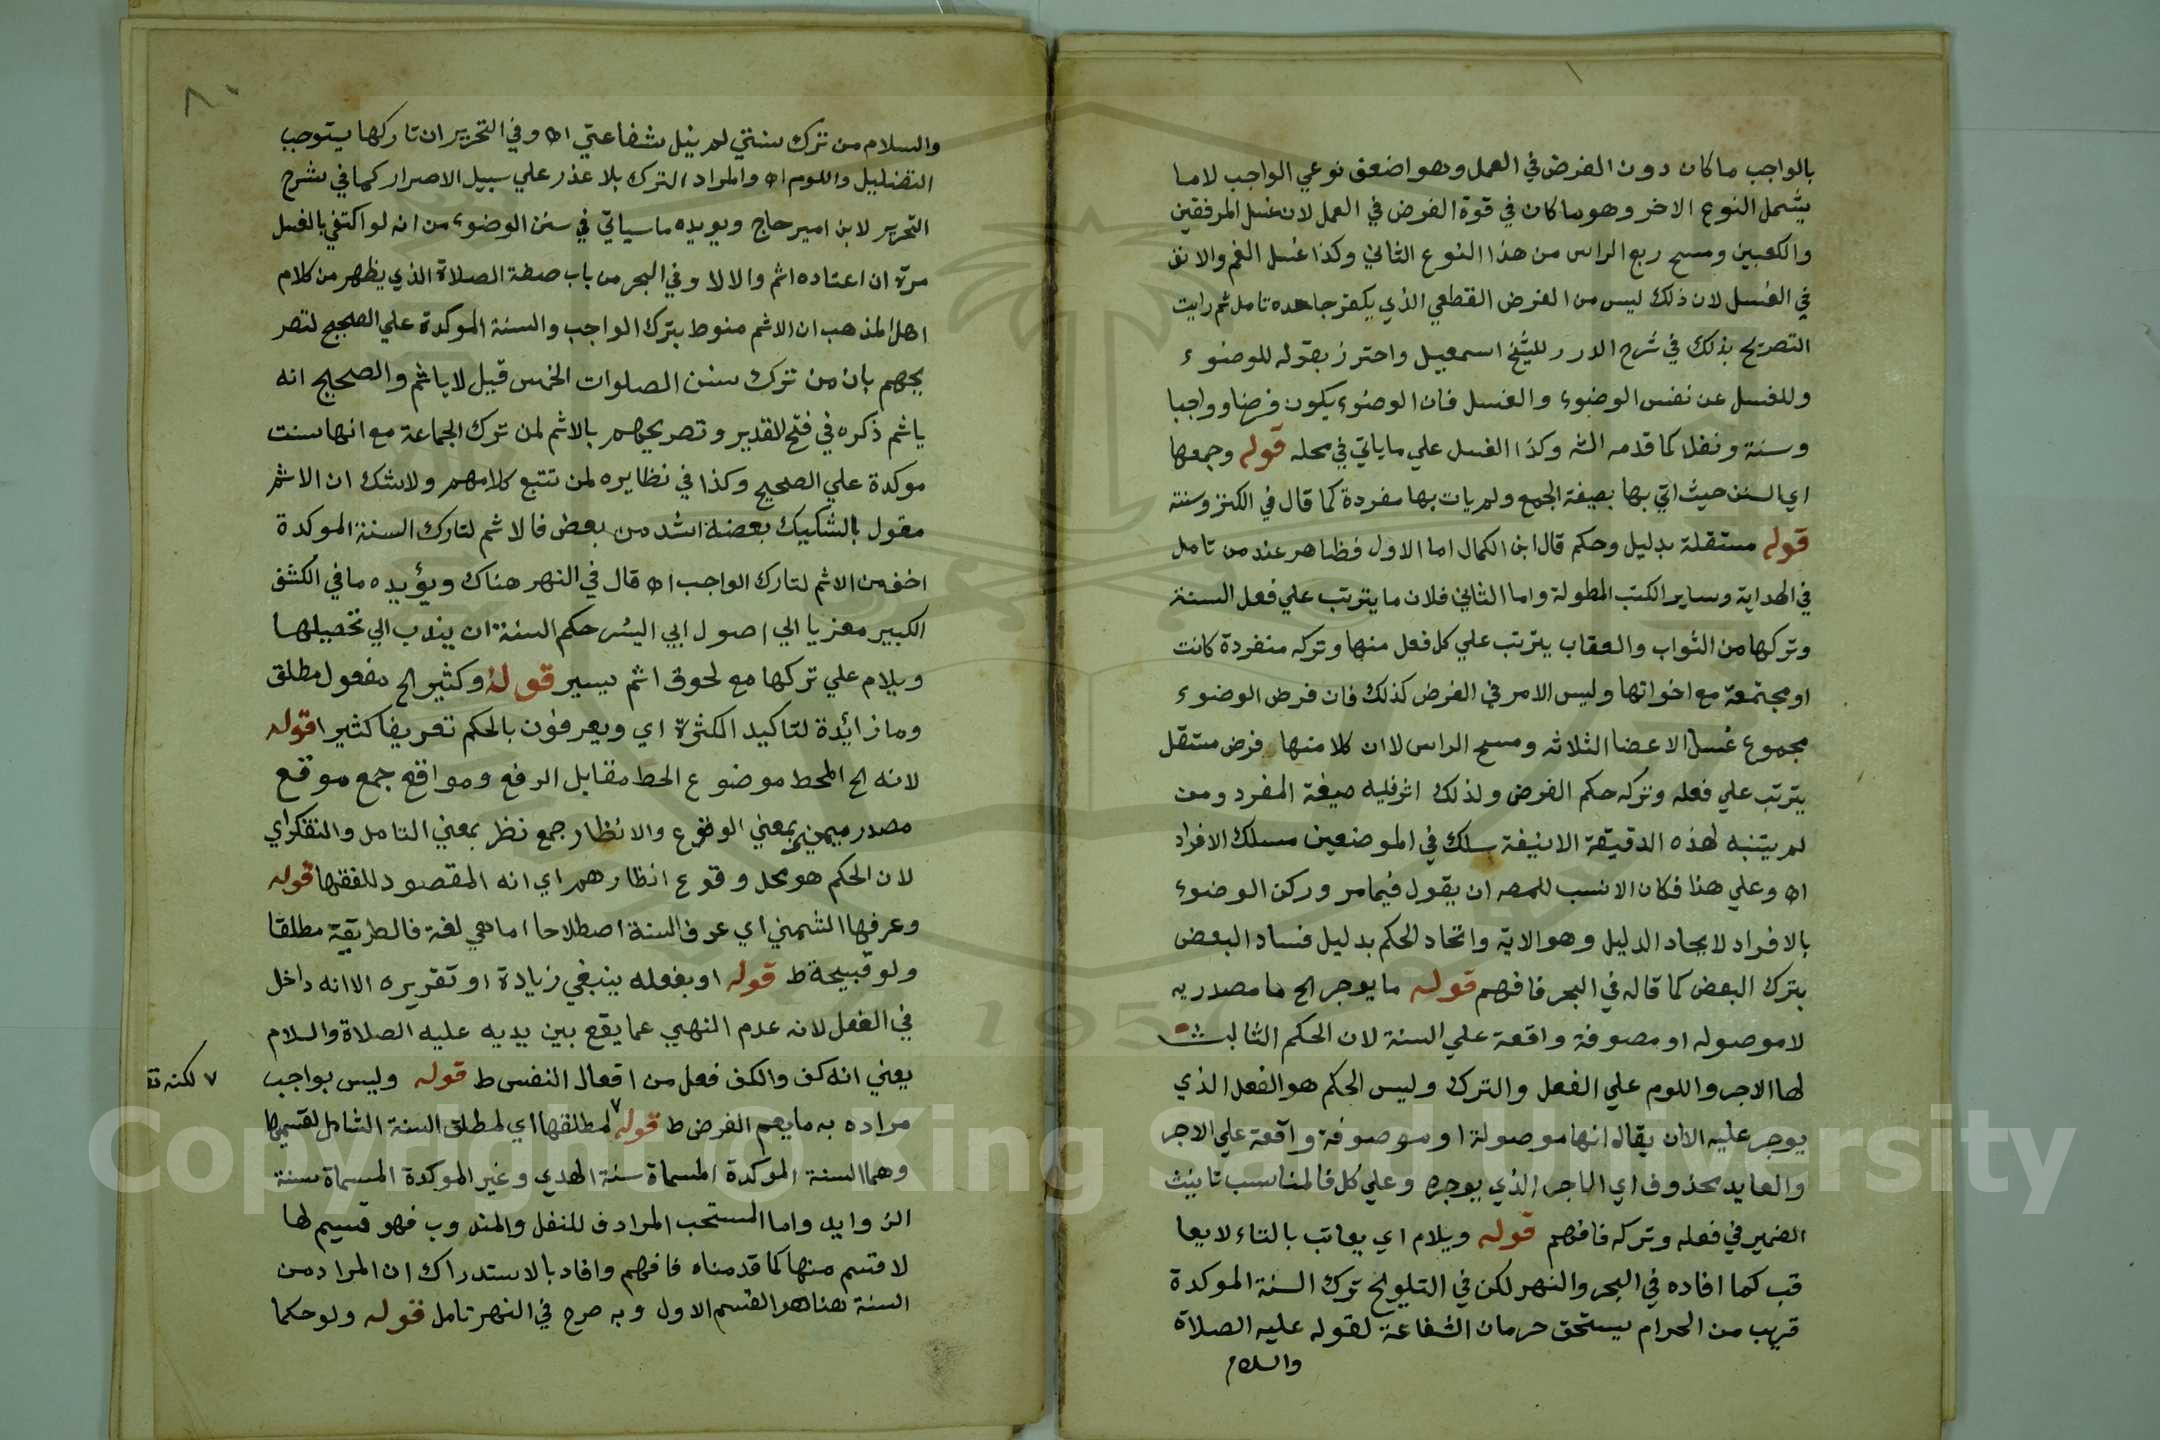 بالواجب ما كان دون الفرض في العمل وهو اضعف نوعي الواجب لا ما
يشمل النوع الاخر وهو ما كان في قوة الفرض في العمل لان غسل المرفقين
والكعبين ومسح ربع الراس من هذا النوع الثاني وكذا غسل الفم والانف
في الغسل لان ذلك ليس من الفرض القطعي الذي يكفر جاحده تامل ثم رايت
التصريح بذلك في شرح الدرر للشيخ اسمعيل واحترز بقوله للوضوء
وللغسل عن نفس الوضوء والغسل فان الوضوء يكون فرضا وواجبا
وسنة ونفلا كما قدمه الشه وكذا الغسل علي ما ياتي في محله قوله وجمعها
اي السنن حيث اتي بها بصيغة الجمع ولم يات بها مفردة كما قال في الكنز وسنته
قوله مستقلة بدليل وحكم قال ابن الكمال اما الاول فظاهر عند من تامل
في الهداية وساير الكتب المطولة واما الثاني فلان ما يترتب علي فعل السنة
وتركها من الثواب والعقاب يترتب علي كل فعل منها وتركه منفردة كانت
او مجتمعة مع اخواتها وليس الامر في الفرض كذلك فان فرض الوضوء
مجموع غسل الاعضا الثلاثه ومسح الراس لا ان كلا منها فرض مستقل
يترتب علي فعله وتركه حكم الفرض ولذلك اثر فيه صيغة المفرد ومن
لم يتنبه لهذه الدقيقة الانيفة سلك في الموضعين مسلك الافراد
اه وعلي هذا فكان الانسب للمصه ان يقول فيما مر وركن الوضوء
بالافراد لايجاد الدليل وهو الاية واتحاد الحكم بدليل فساد البعض
بترك البعض كما قاله في البحر فافهم قوله ما يوجر الخ ما مصدريه
لا موصوله او مصوفة واقعة علي السنة لان الحكم الثابت
لها الاجر واللوم علي الفعل والترك وليس الحكم هو الفعل الذي
يوجر عليه الا ان يقال انها موصولة او موصوفة واقعة علي الاجر
والعايد محذوف اي الاجر الذي يوجره وعلي كل فالمناسب تانيث
الضمير في فعله وتركه فافهم قوله ويلام اي يعاتب بالتاء لا يعا
قب كما افاده في البحر والنهر لكن في التلويح ترك السنة الموكدة
قريب من الحرام يستحق حرمان الشفاعة لقوله عليه الصلاة
والسلام
٨٠
والسلام من ترك سنتي لم ينل شفاعتي اه وفي التحرير ان تاركها يستوجب
التضليل واللوم اه والمراد الترك بلا عذر علي سبيل الاصرار كما في شرح
التحرير لابن امير حاج ويويده ما سياتي في سنن الوضوء من انه لو اكتفي بالغسل
مرة ان اعتاده اثم والا لا وفي البحر من باب صفة الصلاة الذي يظهر من كلام
اهل المذهب ان الاثم منوط بترك الواجب والسنة الموكدة علي الصحيح لتصر
يحهم بان من ترك سنن الصلوات الخمس قيل لا ياثم والصحيح انه
ياثم ذكره في فتح القدير وتصريحهم بالاثم لمن ترك الجماعة مع انها سنت
موكدة علي الصحيح وكذا في نظايره لمن تتبع كلامهم ولا شك ان الاثم
مقول بالشكيك بعضه اشد من بعض فالاثم لتارك السنة الموكدة
اخف من الاثم لتارك الواجب اه قال في النهر هناك ويؤيده ما في الكشف
الكبير معزيا الي اصول ابي اليسر حكم السنة ان يندب الي تحصيلها
ويلام علي تركها مع لحوق اثم يسير قوله وكثير الخ مفعول مطلق
وما زائدة لتاكيد الكثرة اي ويعرفون بالحكم تعريفا كثيرا قوله
لانه الخ المحط موضوع الحط مقابل الرفع ومواقع جمع موقع
مصدر ميمي بمعني الوقوع والانظار جمع نظر بمعني التامل والتفكر اي
لان الحكم هو محل وقوع انظارهم اي انه المقصود للفقها قوله
وعرفها الشمني اي عرف السنة اصطلاحا اما هي لغة فالطريقة مطلقا
ولو قبيحة ط قوله او بفعله ينبغي زيادة او تقريره الا انه داخل
في الفعل لانه عدم النهي عما يقع بين يديه عليه الصلاة والسلام
يعني انه كف والكف فعل من افعال النفس ط قوله وليس بواجب
مراده به ما يعم الفرض ط قوله ٧ لمطلقها اي لمطلق السنة الشامل لقسميها
٧ لكنه تعـ
وهما السنة الموكدة المسماة سنة الهدي وغير الموكدة المسماة سنة
الزوايد واما المستحب المرادف للنفل والمندوب فهو قسيم لها
لا قسم منها كما قدمناه فافهم وافاد بالاستدراك ان المراد من
السنة هنا هو القسم الاول وبه صرح في النهر تامل قوله ولو حكما
Copyright © King Saud University
1957